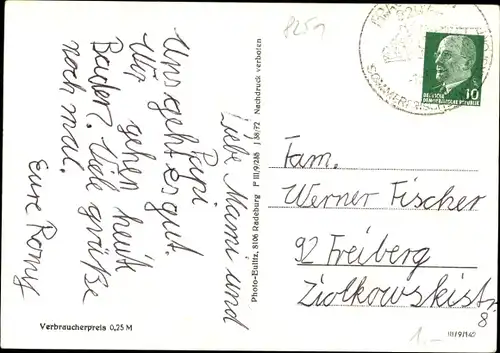 8251
Liebe Mami und
Papi
Uns geht es gut.
Wir gehen heut
Baden. Viel größe
noch mal.
Eure Romy
Verbraucherpreis 0,25 M
Photo-Eulitz, 8106 Radeburg P III/9/286 J 38/72 Nachdruck verboten
SOMMERFRISCHE
DEUTSCHE
DEMOKRATISCHE REPUBLIK
10
Fam.
Werner Fischer
92 Freiberg
Ziolkowskistr
8
1.-
III/9/140